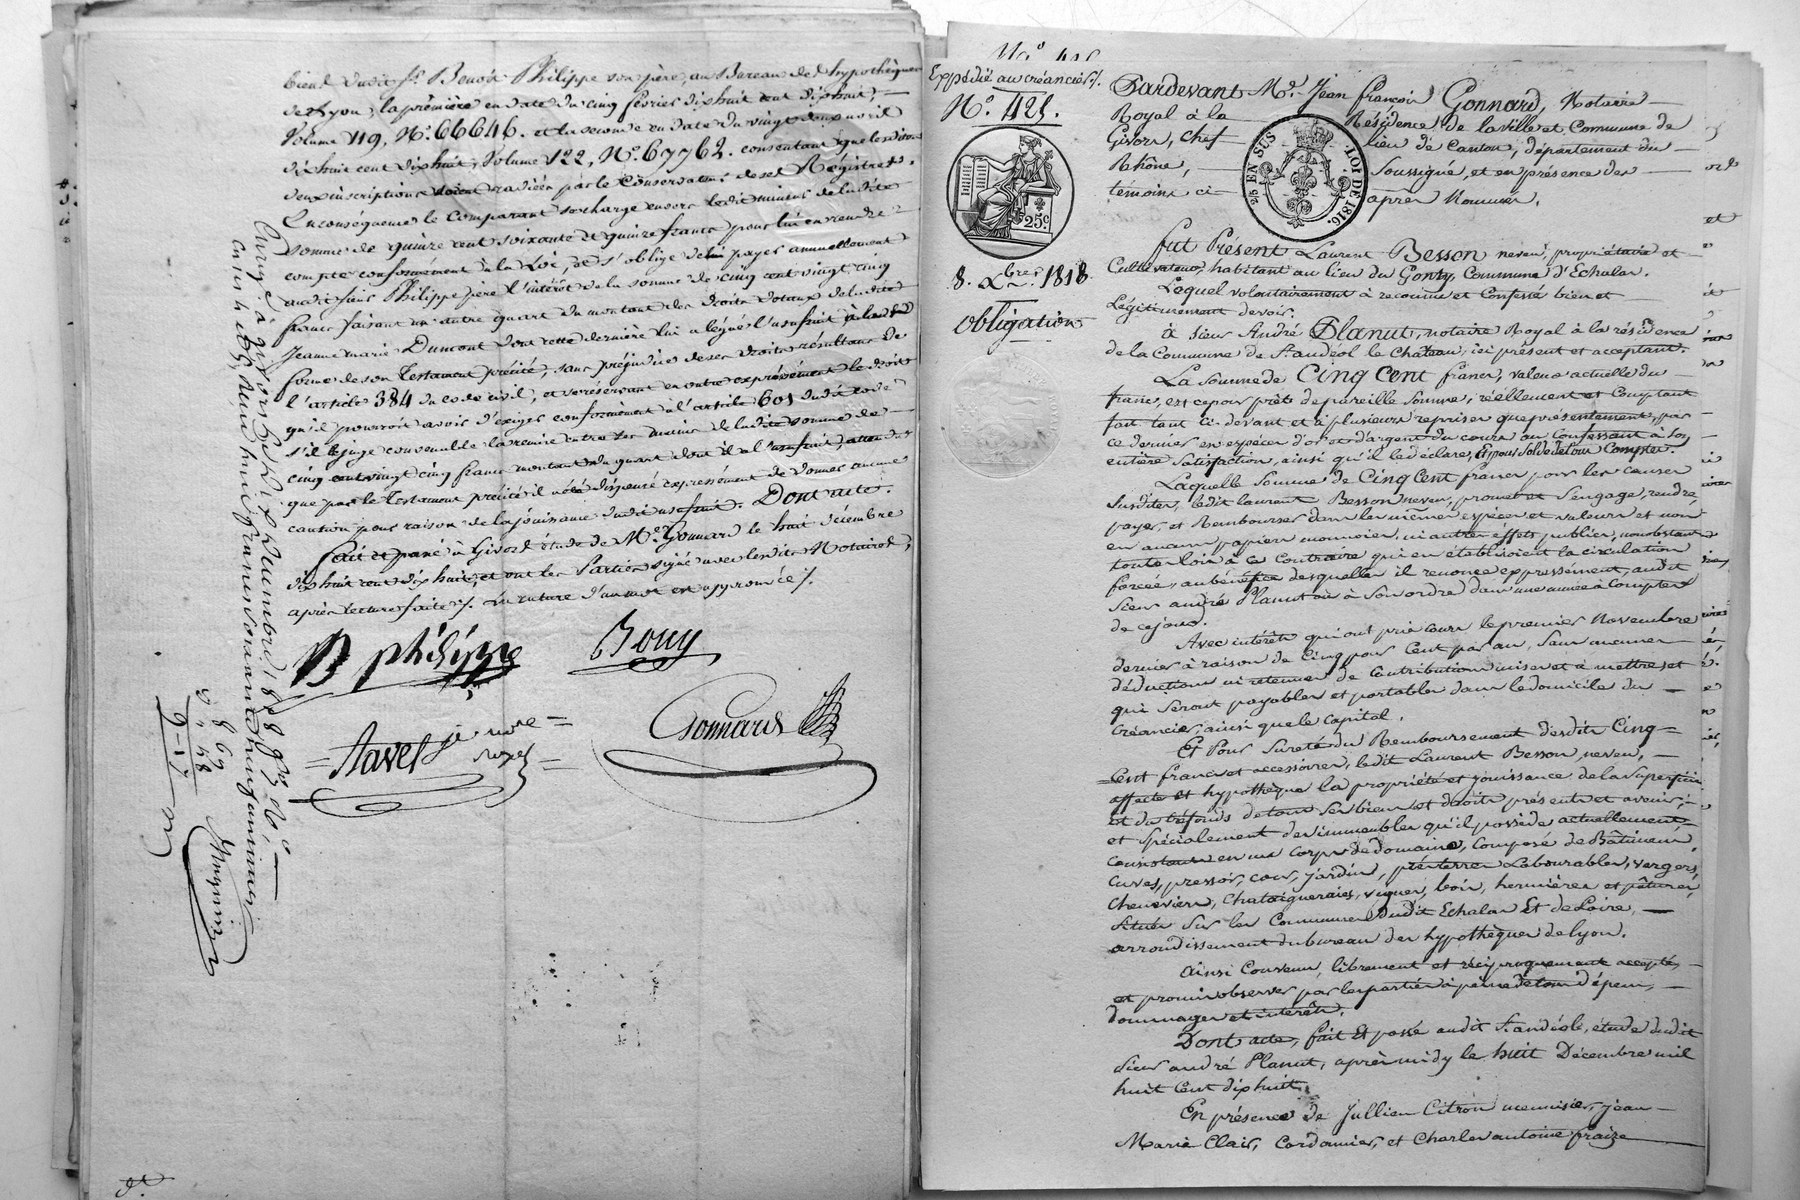 bient dudit Sr. Benoît Philippe son père, au Bureau des hypothèques
de Lyon, la première en date du cinq février dix huit cent dix huit,
Volume 119, N.o 66646. et la seconde en date du vingt deux avril
dix huit cent dix huit, Volume 122, N.o 67762. consentant que lesdites
deux inscriptions soient radiées par le Conservateur de ses Régistres.
En conséquence le comparant se charge envers ledit mineur de ladite
somme de quinze cent soixante et quinze francs pour lui en rendre
compte conformément à la Loi, et s'oblige de payer annuellement
audit sieur Philippe père l'intérêt de la somme de cinq cent vingt cinq
francs faisant un autre quart du montant des droits dotaux de ladite
Jeanne marie Dumont dont cette dernière lui a légué l'usufruit
forme de son Testament précité, sans préjudice de ses droits résultans de
l'article 384 du code civil, et se réservant en outre expressément le droit
qu'il pourroit avoir d'exiger conformément à l'article 601 dudit code
s'il le juge convenable la remise entre les mains de ladite somme de
cinq cent vingt cinq francs montant du quart dont il a l'usufruit, attendu
que par le Testament précité il a été dispensé expressément de donner aucune
caution pour raison de la jouissance dudit usufruit. Dont acte.
fait et passé à Givors étude de Me. Gonnard le huit décembre
dix huit cent dix huit, et ont les Parties signé avec lesdits Notaires,
après lecture faite ./. La rature d'un mot est approuvée ./.
B philippe
Bouy
Favel
Gonnard
No. 425
Expédié au créancier ./.
N.o 425.
25c.
8. Xbre. 1818
Obligation
Pardevant Me. Jean françois Gonnard, Notaire
Royal à la Résidence de la ville et Commune de
Givors, Chef lieu de Canton, département du
Rhône, Soussigné, et en présence des
temoins ci après Nommés.
2/5 EN SUS
LOI DE 1816.
fut Présent Laurent Besson neveu, propriétaire et
Cultivateur, habitant au lieu du Gonty, Commune d'Echalas.
Lequel volontairement à reconnu et Confessé bien et
Légitimement devoir.
à Sieur André Planut, notaire Royal à la résidence
de la Commune de St. andéol le Chateau, ici présent et acceptant.
La Somme de Cinq Cent francs, valeur actuelle du
franc, est ce pour prêt de pareille Somme, réellement et Comptant
fait tant Ci-devant et à plusieurs reprises que présentement, par
ce dernier en espèces d'or et d'argent du cours au Confessant à son
entière Satisfaction, ainsi qu'il le déclare, et pour Solde de tout Compter.
Laquelle Somme de Cinq Cent francs pour les causes
Susdites, ledit laurent Besson neveu, promet et S'engage, rendre,
payer, et Rembourser dans les mêmes espèces et valeurs et non
en aucun papier monnoier, ni autres effets publics, nonobstant
toute loix à ce Contraire qui en établissoient la circulation
forcée, au bénéfice desquelles il renonce expressément, audit
Sieur andré Planut ou à Son ordre dans une année à Compter
de ce jour.
Avec intérêts qui ont pris cours le premier Novembre
dernier à raison de Cinq pour Cent par an, Sans aucune
déduction ni retenue de Contribution mises et à mettre, et
qui seront payables et portables dans le domicile du
Créancier, ainsi que le Capital.
Et Pour Sureté du Remboursement desdits Cinq
Cent francs et accessoires, ledit Laurent Besson, neveu,
affecte et hypothèque la propriété et jouissance de la Superficie
et du tréfonds de tous Ses biens et droits présents et avenir,
et Spécialement des immeubles qu'il possède actuellement
Consistant en un Corps de domaine, Composé de Bâtiments,
Cuves, pressoir, cour, jardin, prés terres Labourables, vergers,
Chenevières, Chataigneraies, vignes, bois, hermières et pâtures,
Situés Sur les Communes dudit Echalas Et de Loire,
arrondissement du bureau des hypothèques de Lyon.
Ainsi Convenu, librement et réciproquement accepté,
et promis observer par les parties à peine de tous dépens,
dommages et intérêts.
Dont acte, fait Et passé audit St. andéol, étude dudit
Sieur andré Planut, après midy le huit Décembre mil
huit Cent dix huit.
En présence de Jullien Citron menuisier, jean
Marie Clair, Cordonnier, et Charles antoine fraize